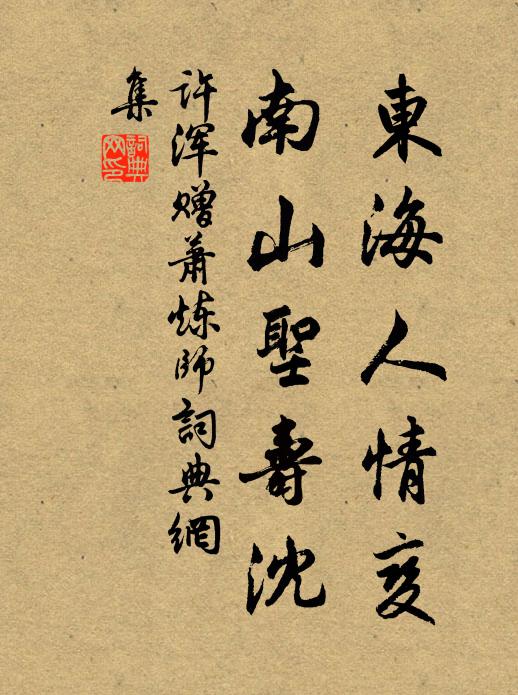 東海人情变
南山聖壽沈
许浑赠萧炼師詞典網
集
詞典网印